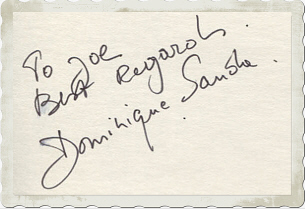 To Joe
Best Regards.
Dominique Sanda.